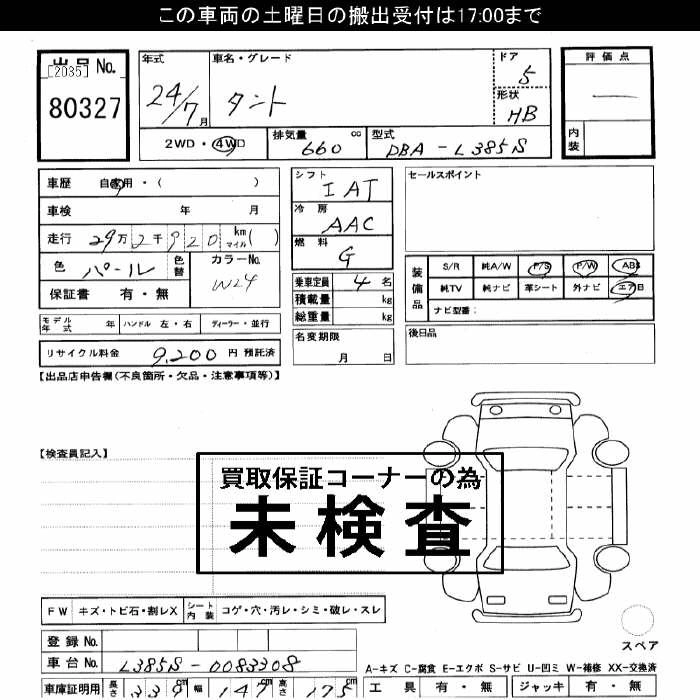 この車両の土曜日の搬出受付は17:00まで
出品 No. [2035]
80327
年式 24/7月
車名・グレード タント
ドア 5
形状 HB
評価点 —
内装
2WD・4WD 排気量 660 cc 型式 DBA-L385S
車歴 自家用・( )
車検 年 月
走行 29万2千920 km マイル( )
色 パール 色替 カラーNo. W24
保証書 有・無
モデル年式 年 ハンドル 左・右 ディーラー・並行
リサイクル料金 9,200 円 預託済
シフト IAT
冷房 AAC
燃料 G
乗車定員 4 名
積載量 kg
総重量 kg
名変期限 月 日
セールスポイント
装備品 S/R 純A/W P/S P/W ABS
純TV 純ナビ 革シート 外ナビ エアB
ナビ型番:
後日品
【出品店申告欄(不良箇所・欠品・注意事項等)】
【検査員記入】
買取保証コーナーの為
未検査
FW キズ・トビ石・割レX シート内装 コゲ・穴・汚レ・シミ・破レ・スレ
スペア
登録 No.
車台 No. L385S-0083308
A-キズ C-腐食 E-エクボ S-サビ U-凹ミ W-補修 XX-交換済
車庫証明用 長さ 339 cm 幅 147 cm 高さ 175 cm
工具 有・無 ジャッキ 有・無